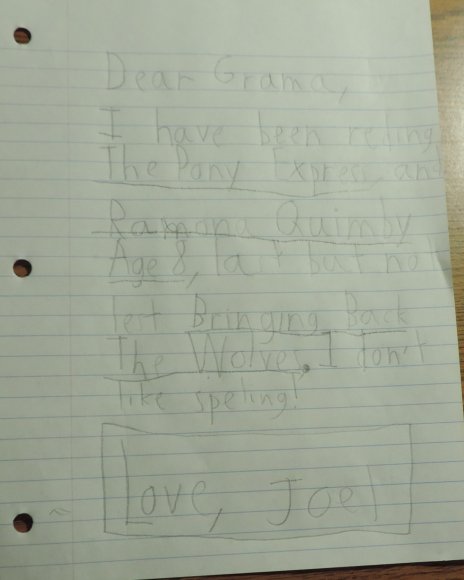 Dear Grama,
I have been reding
The Pony Express and
Ramona Quimby
Age 8, last but no
lest Bringing Back
The Wolves. I don't
like speling!
Love, Joel